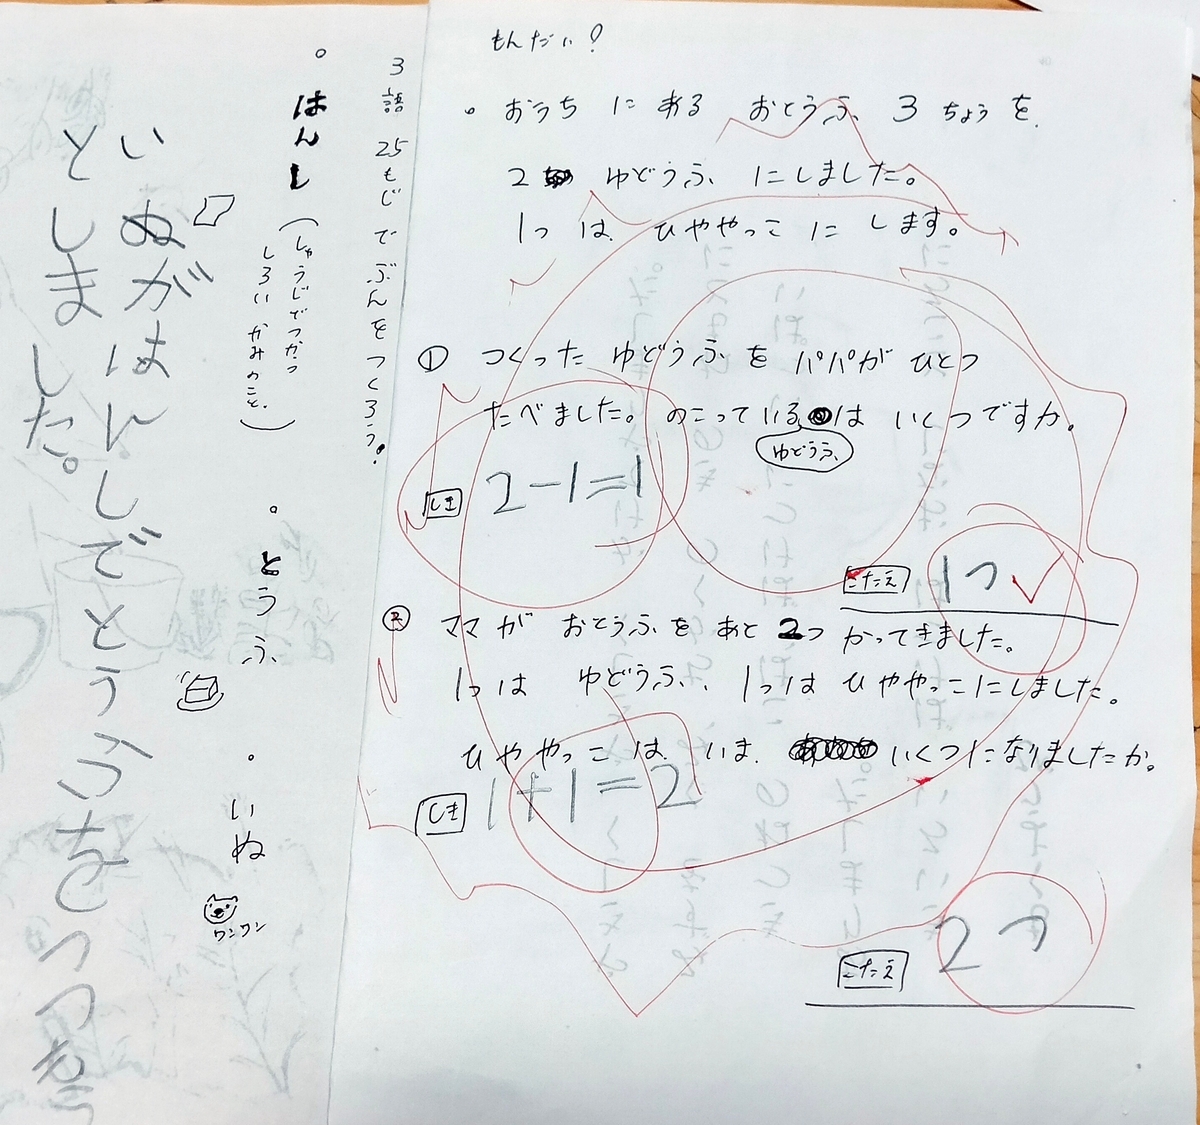 もんだい?
。おうち に ある おとうふ 3 ちょう を
2 ゆどうふ にしました。
1つ は ひややっこ に します。
① つくった ゆどうふ を パパが ひとつ
たべました。のこっている は いくつですか。
ゆどうふ
しき 2-1=1
こたえ 1つ
② ママが おとうふを あと 2つ かってきました。
1つは ゆどうふ、1つは ひややっこにしました。
ひややっこ は いま いくつに なりましたか。
しき 1+1=2
こたえ 2つ
3語 25もじ で ぶんを つくろう!
。はんし
(しゅうじでつかう
しろい かみのこと。)
。とうふ
。いぬ
ワンワン
いぬがはんしでとうふをつつもう
としました。